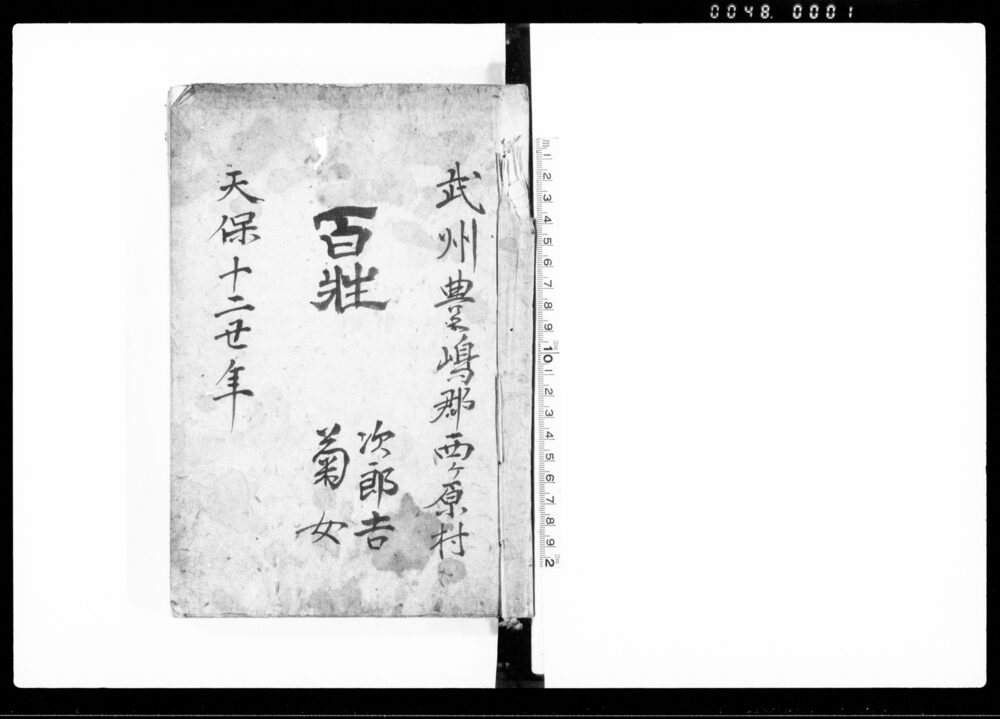 0048. 0001
武州豊嶋郡西ヶ原村
百姓
次郎吉
菊女
天保十二丑年
m 1 2 3 4 5 6 7 8 9 10 1 2 3 4 5 6 7 8 9 2